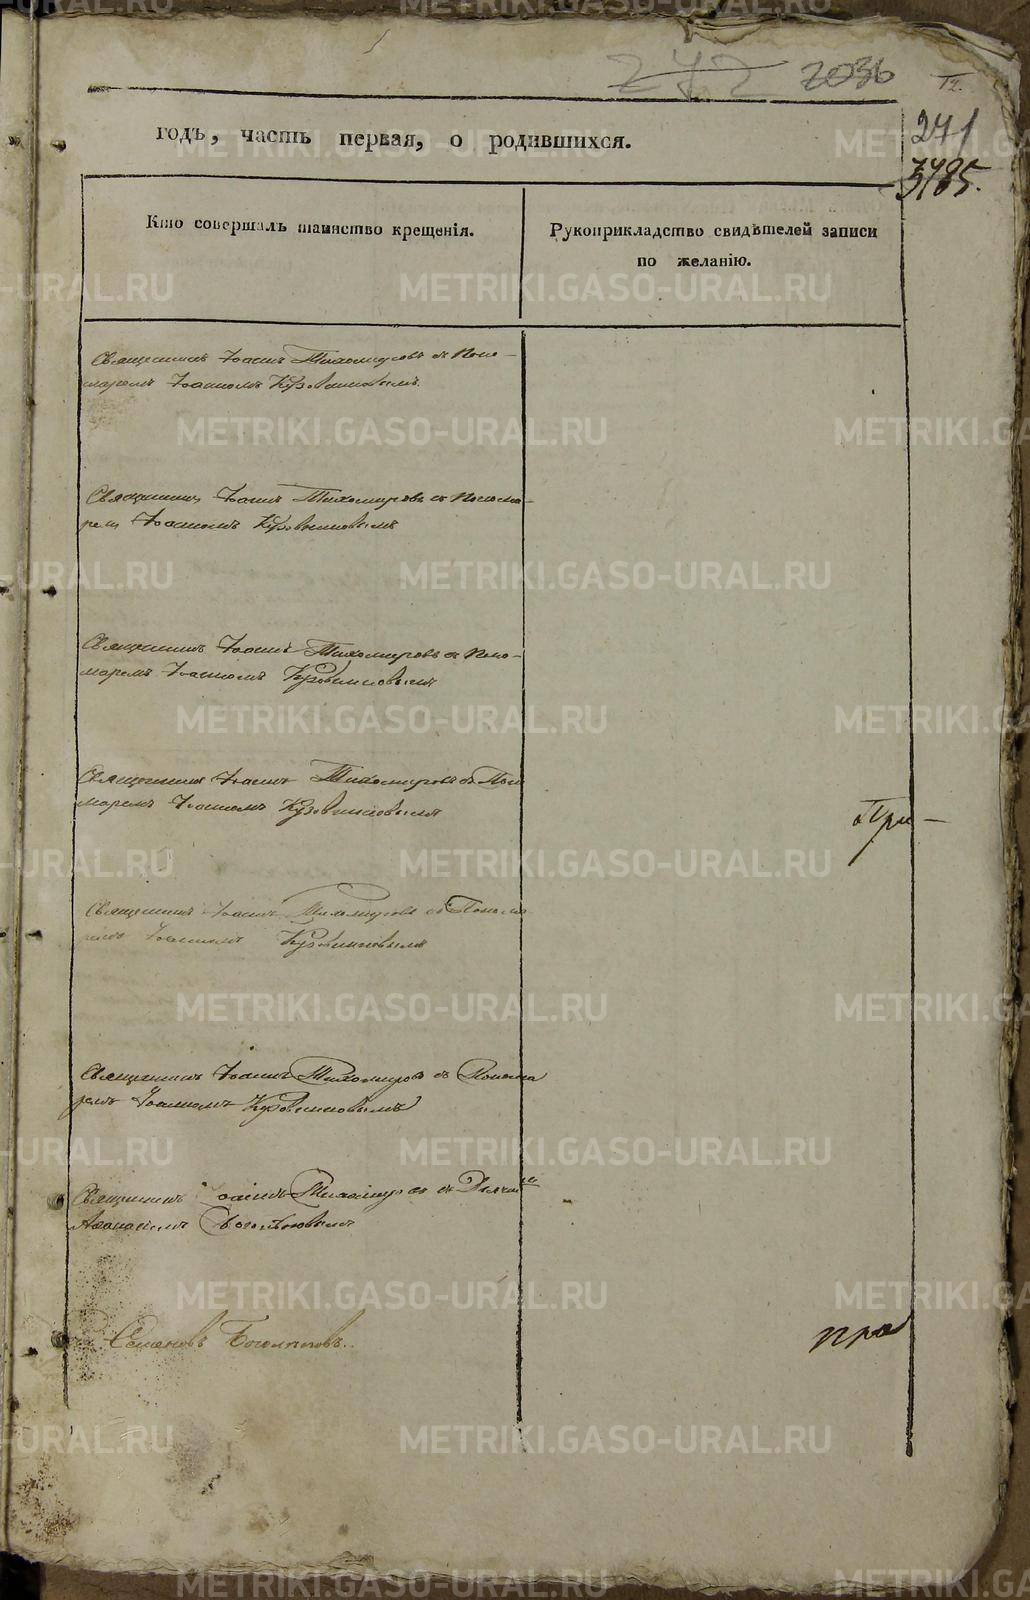 272 2036
12.
271
3785.
годъ, часть первая, о родившихся.
Кто совершалъ таинство крещенія.
Рукоприкладство свидѣтелей записи
по желанію.
Священникъ Іоаннъ Тихомировъ съ Поно-
маремъ Іоанномъ
Священникъ Іоаннъ Тихомировъ съ Понома-
ремъ Іоанномъ
Священникъ Іоаннъ Тихомировъ съ Поно-
маремъ Іоанномъ
Священникъ Іоаннъ Тихомировъ съ Поно
маремъ Іоанномъ
При-
Священникъ Іоаннъ Тихомировъ съ Понома
ремъ Іоанномъ
Священникъ Іоаннъ Тихомировъ съ Понома
ремъ Іоанномъ
Священникъ Іоаннъ Тихомировъ съ
Аѳанасіемъ
Семеновъ
METRIKI.GASO-URAL.RU